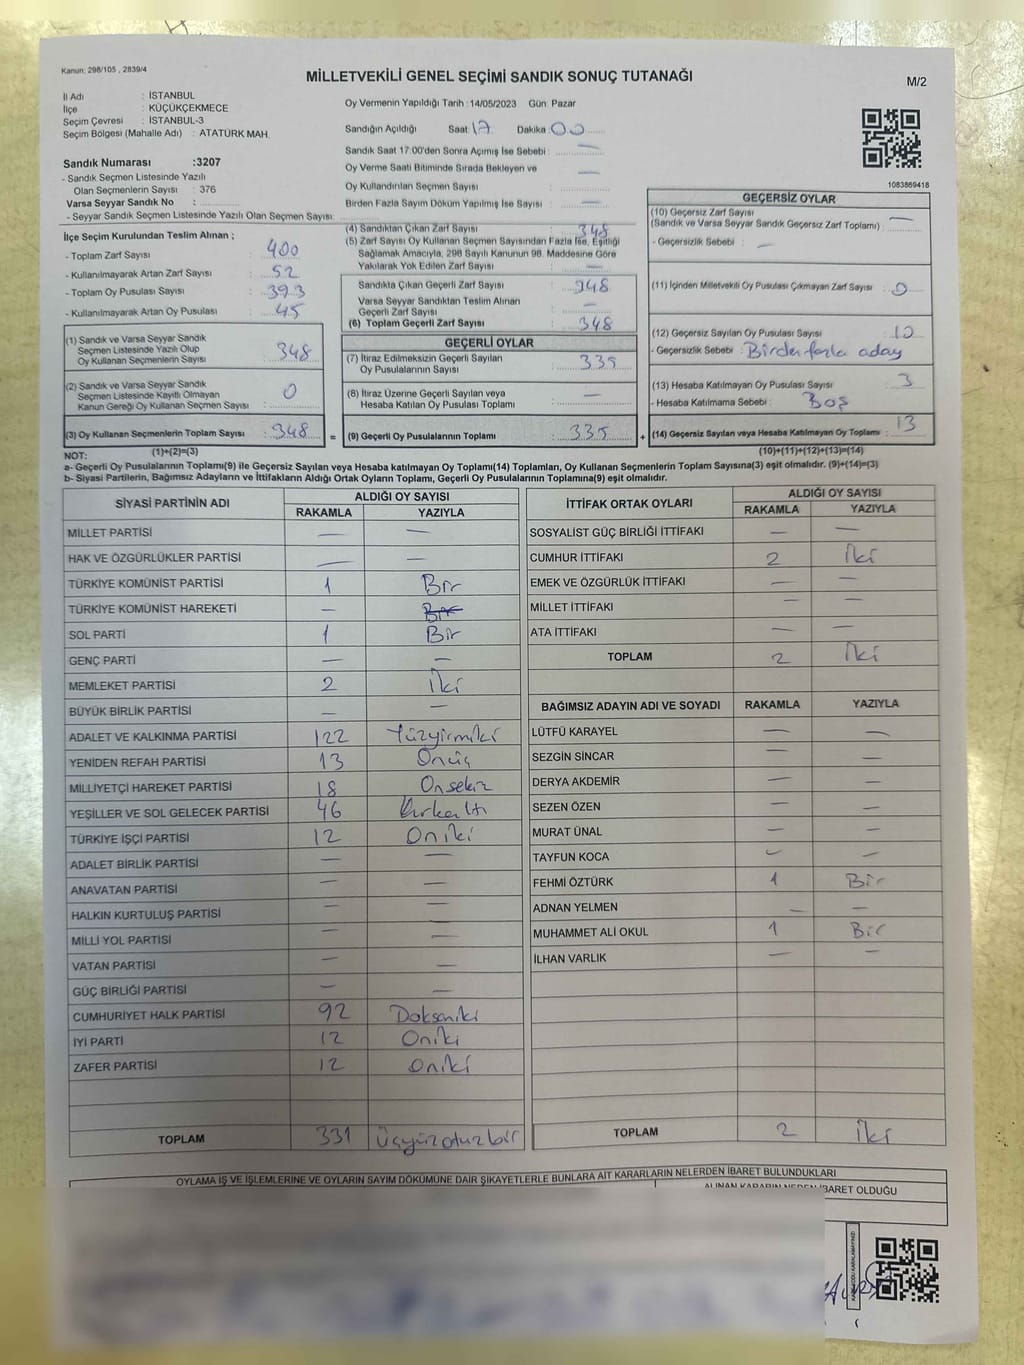 Kanun: 298/105 , 2839/4
MİLLETVEKİLİ GENEL SEÇİMİ SANDIK SONUÇ TUTANAĞI
M/2
İl Adı : İSTANBUL
İlçe : KÜÇÜKÇEKMECE
Seçim Çevresi : İSTANBUL-3
Seçim Bölgesi (Mahalle Adı) : ATATÜRK MAH.
Sandık Numarası :3207
- Sandık Seçmen Listesinde Yazılı
Olan Seçmenlerin Sayısı : 376
Varsa Seyyar Sandık No :
- Seyyar Sandık Seçmen Listesinde Yazılı Olan Seçmen Sayısı:
Oy Vermenin Yapıldığı Tarih :14/05/2023 Gün: Pazar
Sandığın Açıldığı Saat: 17 Dakika: 00
Sandık Saat 17:00'den Sonra Açımış İse Sebebi : —
Oy Verme Saati Bitiminde Sırada Bekleyen ve
Oy Kullandırılan Seçmen Sayısı : —
Birden Fazla Sayım Döküm Yapılmış İse Sayısı : —
1083869418
İlçe Seçim Kurulundan Teslim Alınan ;
- Toplam Zarf Sayısı : 400
- Kullanılmayarak Artan Zarf Sayısı : 52
- Toplam Oy Pusulası Sayısı : 393
- Kullanılmayarak Artan Oy Pusulası : 45
(1) Sandık ve Varsa Seyyar Sandık
Seçmen Listesinde Yazılı Olup
Oy Kullanan Seçmenlerin Sayısı : 348
(2) Sandık ve Varsa Seyyar Sandık
Seçmen Listesinde Kayıtlı Olmayan
Kanun Gereği Oy Kullanan Seçmen Sayısı : 0
(3) Oy Kullanan Seçmenlerin Toplam Sayısı : 348
(4) Sandıktan Çıkan Zarf Sayısı : 348
(5) Zarf Sayısı Oy Kullanan Seçmen Sayısından Fazla İse, Eşitliği
Sağlamak Amacıyla, 298 Sayılı Kanunun 98. Maddesine Göre
Yakılarak Yok Edilen Zarf Sayısı : —
Sandıkta Çıkan Geçerli Zarf Sayısı : 348
Varsa Seyyar Sandıktan Teslim Alınan
Geçerli Zarf Sayısı : —
(6) Toplam Geçerli Zarf Sayısı : 348
GEÇERLİ OYLAR
(7) İtiraz Edilmeksizin Geçerli Sayılan
Oy Pusulalarının Sayısı : 335
(8) İtiraz Üzerine Geçerli Sayılan veya
Hesaba Katılan Oy Pusulası Toplamı : —
= (9) Geçerli Oy Pusulalarının Toplamı : 335 +
GEÇERSİZ OYLAR
(10) Geçersiz Zarf Sayısı
(Sandık ve Varsa Seyyar Sandık Geçersiz Zarf Toplamı) : —
- Geçersizlik Sebebi : —
(11) İçinden Milletvekili Oy Pusulası Çıkmayan Zarf Sayısı : 0
(12) Geçersiz Sayılan Oy Pusulası Sayısı : 10
- Geçersizlik Sebebi : Birden fazla aday
(13) Hesaba Katılmayan Oy Pusulası Sayısı : 3
- Hesaba Katılmama Sebebi : Boş
(14) Geçersiz Sayılan veya Hesaba Katılmayan Oy Toplamı : 13
NOT: (1)+(2)=(3) (10)+(11)+(12)+(13)=(14)
a- Geçerli Oy Pusulalarının Toplamı(9) ile Geçersiz Sayılan veya Hesaba katılmayan Oy Toplamı(14) Toplamları, Oy Kullanan Seçmenlerin Toplam Sayısına(3) eşit olmalıdır. (9)+(14)=(3)
b- Siyasi Partilerin, Bağımsız Adayların ve İttifakların Aldığı Ortak Oyların Toplamı, Geçerli Oy Pusulalarının Toplamına(9) eşit olmalıdır.
SİYASİ PARTİNİN ADI ALDIĞI OY SAYISI
RAKAMLA YAZIYLA
MİLLET PARTİSİ — —
HAK VE ÖZGÜRLÜKLER PARTİSİ — —
TÜRKİYE KOMÜNİST PARTİSİ 1 Bir
TÜRKİYE KOMÜNİST HAREKETİ — Bir
SOL PARTİ 1 Bir
GENÇ PARTİ — —
MEMLEKET PARTİSİ 2 İki
BÜYÜK BİRLİK PARTİSİ — —
ADALET VE KALKINMA PARTİSİ 122 Yüzyirmiki
YENİDEN REFAH PARTİSİ 13 Onüç
MİLLİYETÇİ HAREKET PARTİSİ 18 Onsekiz
YEŞİLLER VE SOL GELECEK PARTİSİ 46 Kırkaltı
TÜRKİYE İŞÇİ PARTİSİ 12 Oniki
ADALET BİRLİK PARTİSİ — —
ANAVATAN PARTİSİ — —
HALKIN KURTULUŞ PARTİSİ — —
MİLLİ YOL PARTİSİ — —
VATAN PARTİSİ — —
GÜÇ BİRLİĞİ PARTİSİ — —
CUMHURİYET HALK PARTİSİ 92 Doksaniki
İYİ PARTİ 12 Oniki
ZAFER PARTİSİ 12 Oniki
TOPLAM 331 Üçyüzotuzbir
İTTİFAK ORTAK OYLARI ALDIĞI OY SAYISI
RAKAMLA YAZIYLA
SOSYALİST GÜÇ BİRLİĞİ İTTİFAKI — —
CUMHUR İTTİFAKI 2 İki
EMEK VE ÖZGÜRLÜK İTTİFAKI — —
MİLLET İTTİFAKI — —
ATA İTTİFAKI — —
TOPLAM 2 İki
BAĞIMSIZ ADAYIN ADI VE SOYADI RAKAMLA YAZIYLA
LÜTFÜ KARAYEL — —
SEZGİN SİNCAR — —
DERYA AKDEMİR — —
SEZEN ÖZEN — —
MURAT ÜNAL — —
TAYFUN KOCA — —
FEHMİ ÖZTÜRK 1 Bir
ADNAN YELMEN — —
MUHAMMET ALİ OKUL 1 Bir
İLHAN VARLIK — —
TOPLAM 2 İki
OYLAMA İŞ VE İŞLEMLERİNE VE OYLARIN SAYIM DÖKÜMÜNE DAİR ŞİKAYETLERLE BUNLARA AİT KARARLARIN NELERDEN İBARET BULUNDUKLARI
ALINAN KARARIN NEDEN İBARET OLDUĞU